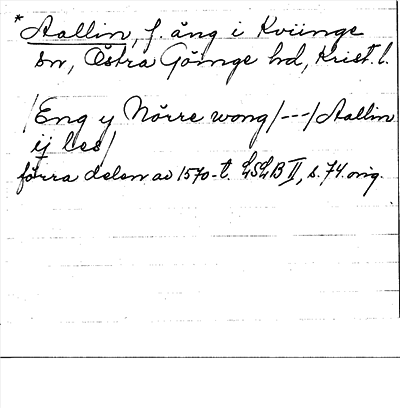 * Aallin, f. äng i Kviinge
sn, Östra Göinge hd, Krist. l.
/Eng y Nörre wong/---/Aallin
ij les/
förra delen av 1570-t. LSLB II, s. 74. orig.